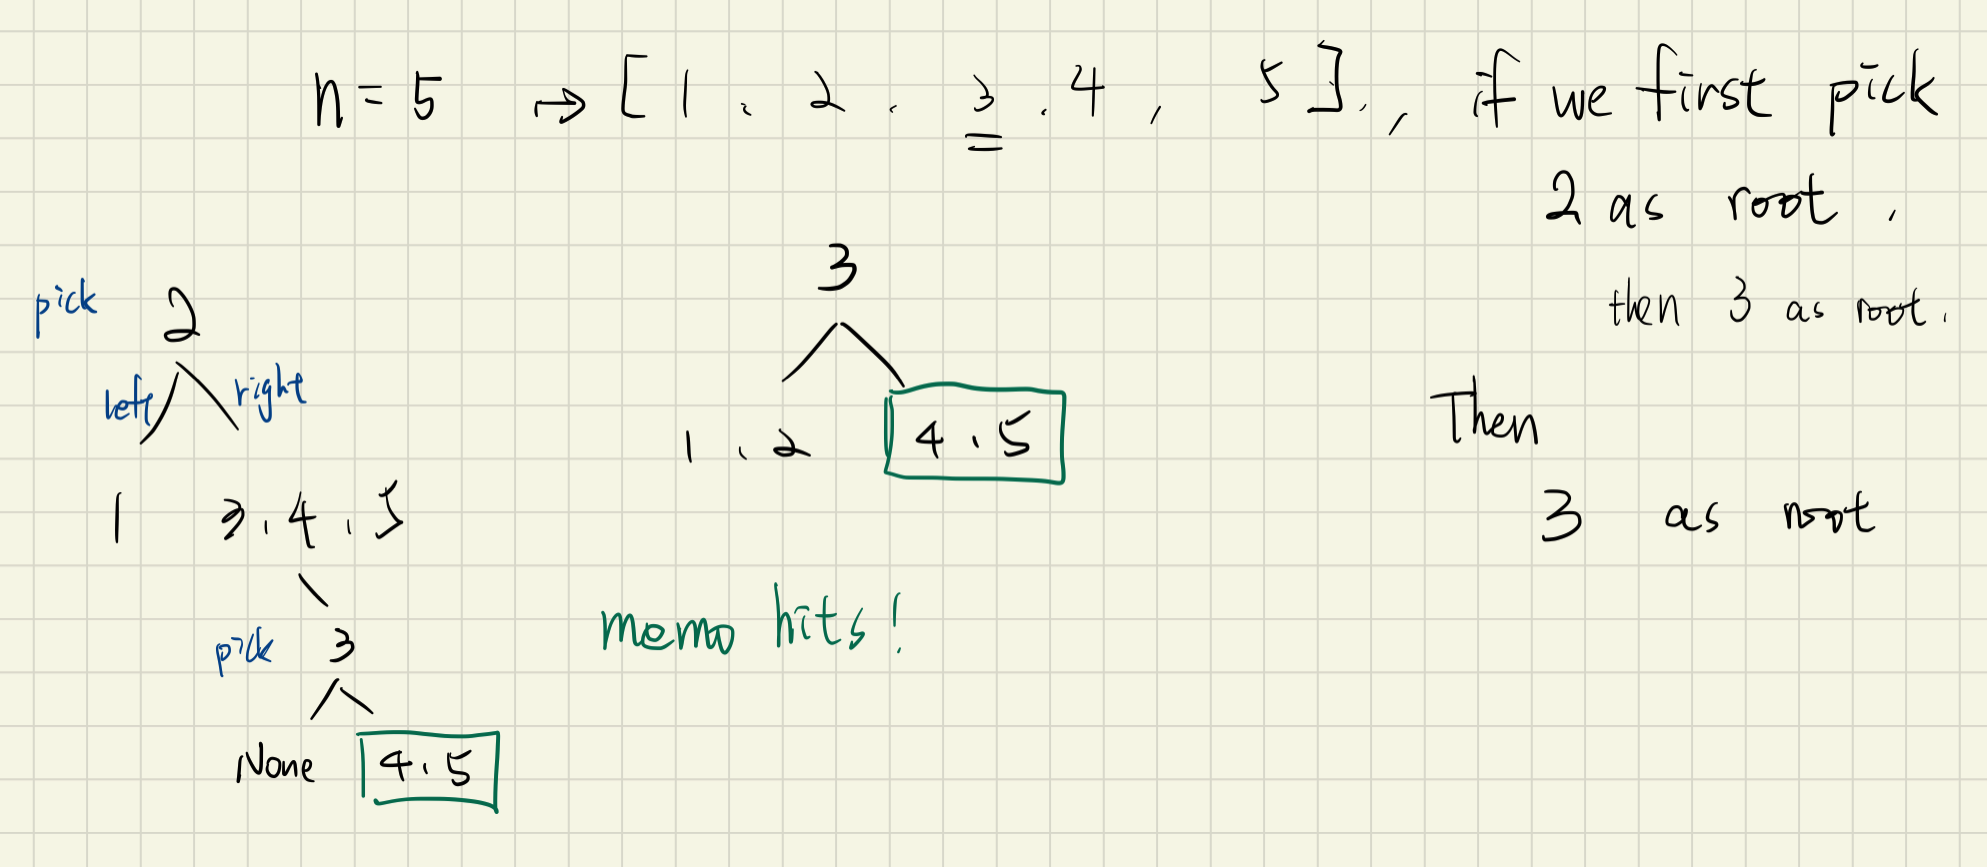 n = 5 → [ 1 , 2 , 3 , 4 , 5 ] , , if we first pick
2 as root ,
then 3 as root .
Then
3 as root
pick 2
left right
1 3 , 4 , 5
pick 3
None 4 , 5
3
1 , 2 4 , 5
memo hits!